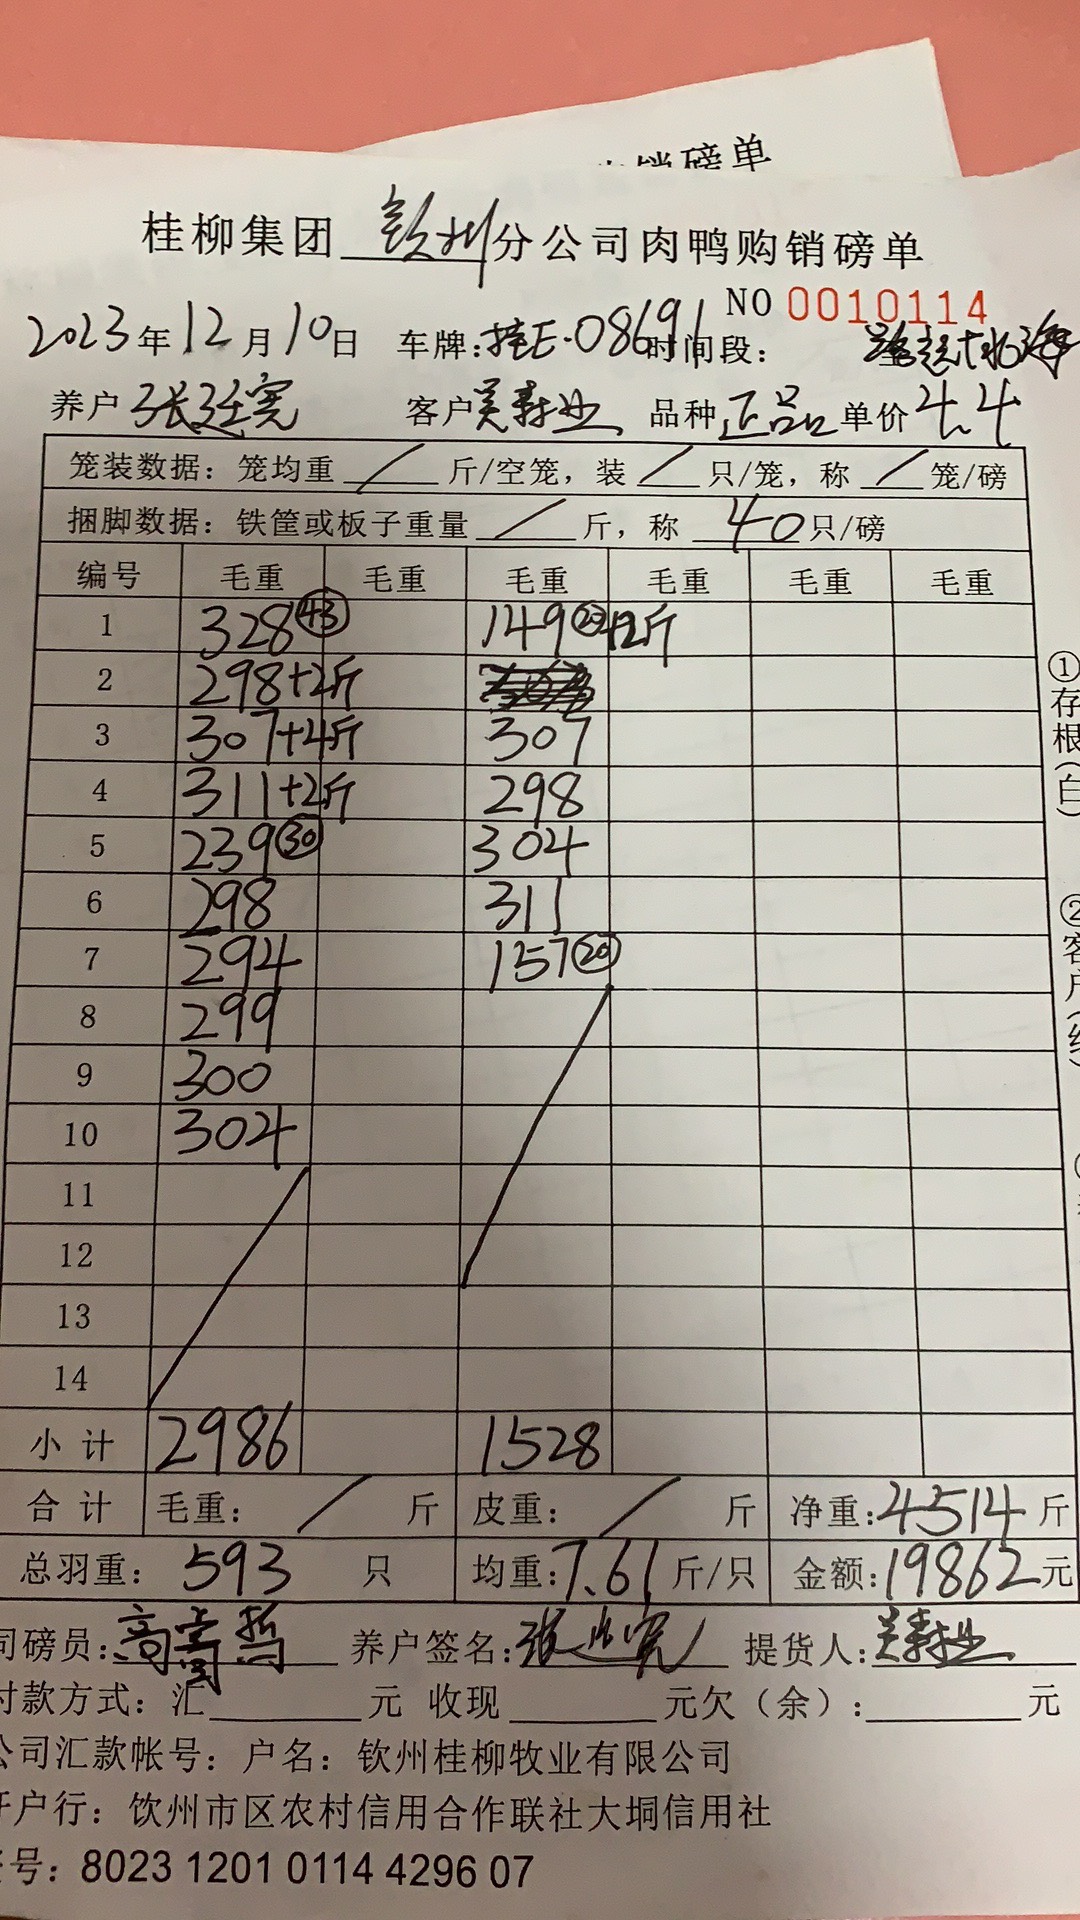 小销磅单
桂柳集团 钦州 分公司肉鸭购销磅单
NO 0010114
2023年12月10日 车牌:桂E·08691 时间段:
养户 张廷宪 客户 吴寿业 品种 正品 单价 4.4
笼装数据：笼均重 / 斤/空笼，装 / 只/笼，称 / 笼/磅
捆脚数据：铁筐或板子重量 / 斤，称 40 只/磅
编号 毛重 毛重 毛重 毛重 毛重 毛重
1 328 43 149 +2斤
2 298+2斤
3 307+4斤 307
4 311+2斤 298
5 239 30 304
6 298 311
7 294 157 20
8 299
9 300
10 304
11
12
13
14
小计 2986 1528
合计 毛重： / 斤 皮重： / 斤 净重:4514斤
总羽重：593 只 均重:7.61斤/只 金额:19862元
司磅员: 养户签名:张廷宪 提货人:吴寿业
付款方式：汇 元 收现 元欠（余）: 元
公司汇款帐号：户名：钦州桂柳牧业有限公司
开户行：饮州市区农村信用合作联社大垌信用社
账号：8023 1201 0114 4296 07
①存根(白)
②客户(红)